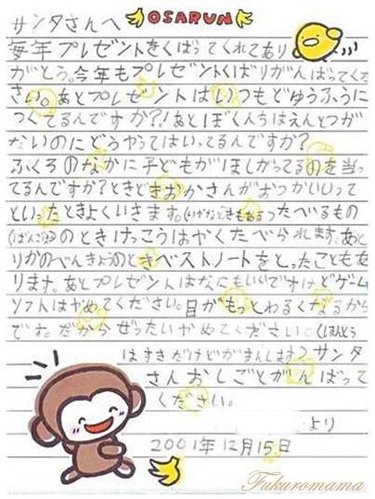 サンタさんへ OSARUN
毎年プレゼントをくばってくれてあり
がとう。今年もプレゼントくばりがんばってくだ
さい。あとプレゼントはいつもどゆうふうに
つくてるんですか?!あとぼくんちはえんとつが
ないのにどうやってはいってるんですか?
ふくろのなかに子どもがほしがってるのを当っ
てるんですか?ときどきおかさんがおつかいいって
といったときよくいきます。たべるもの
のときけっこうはやくたべられます。あと
りかのべんきょうのときベストノートをとったこともあ
ります。あとプレゼントはなにもいいですけどゲーム
ソフトはやめてください。目がもっとわるくなるから
です。だからぜったいやめてください。(ほんとう
はすきだけどがまんします)サンタ
さんおしごとがんばって
ください。
より
2001年12月15日
Fukuromama